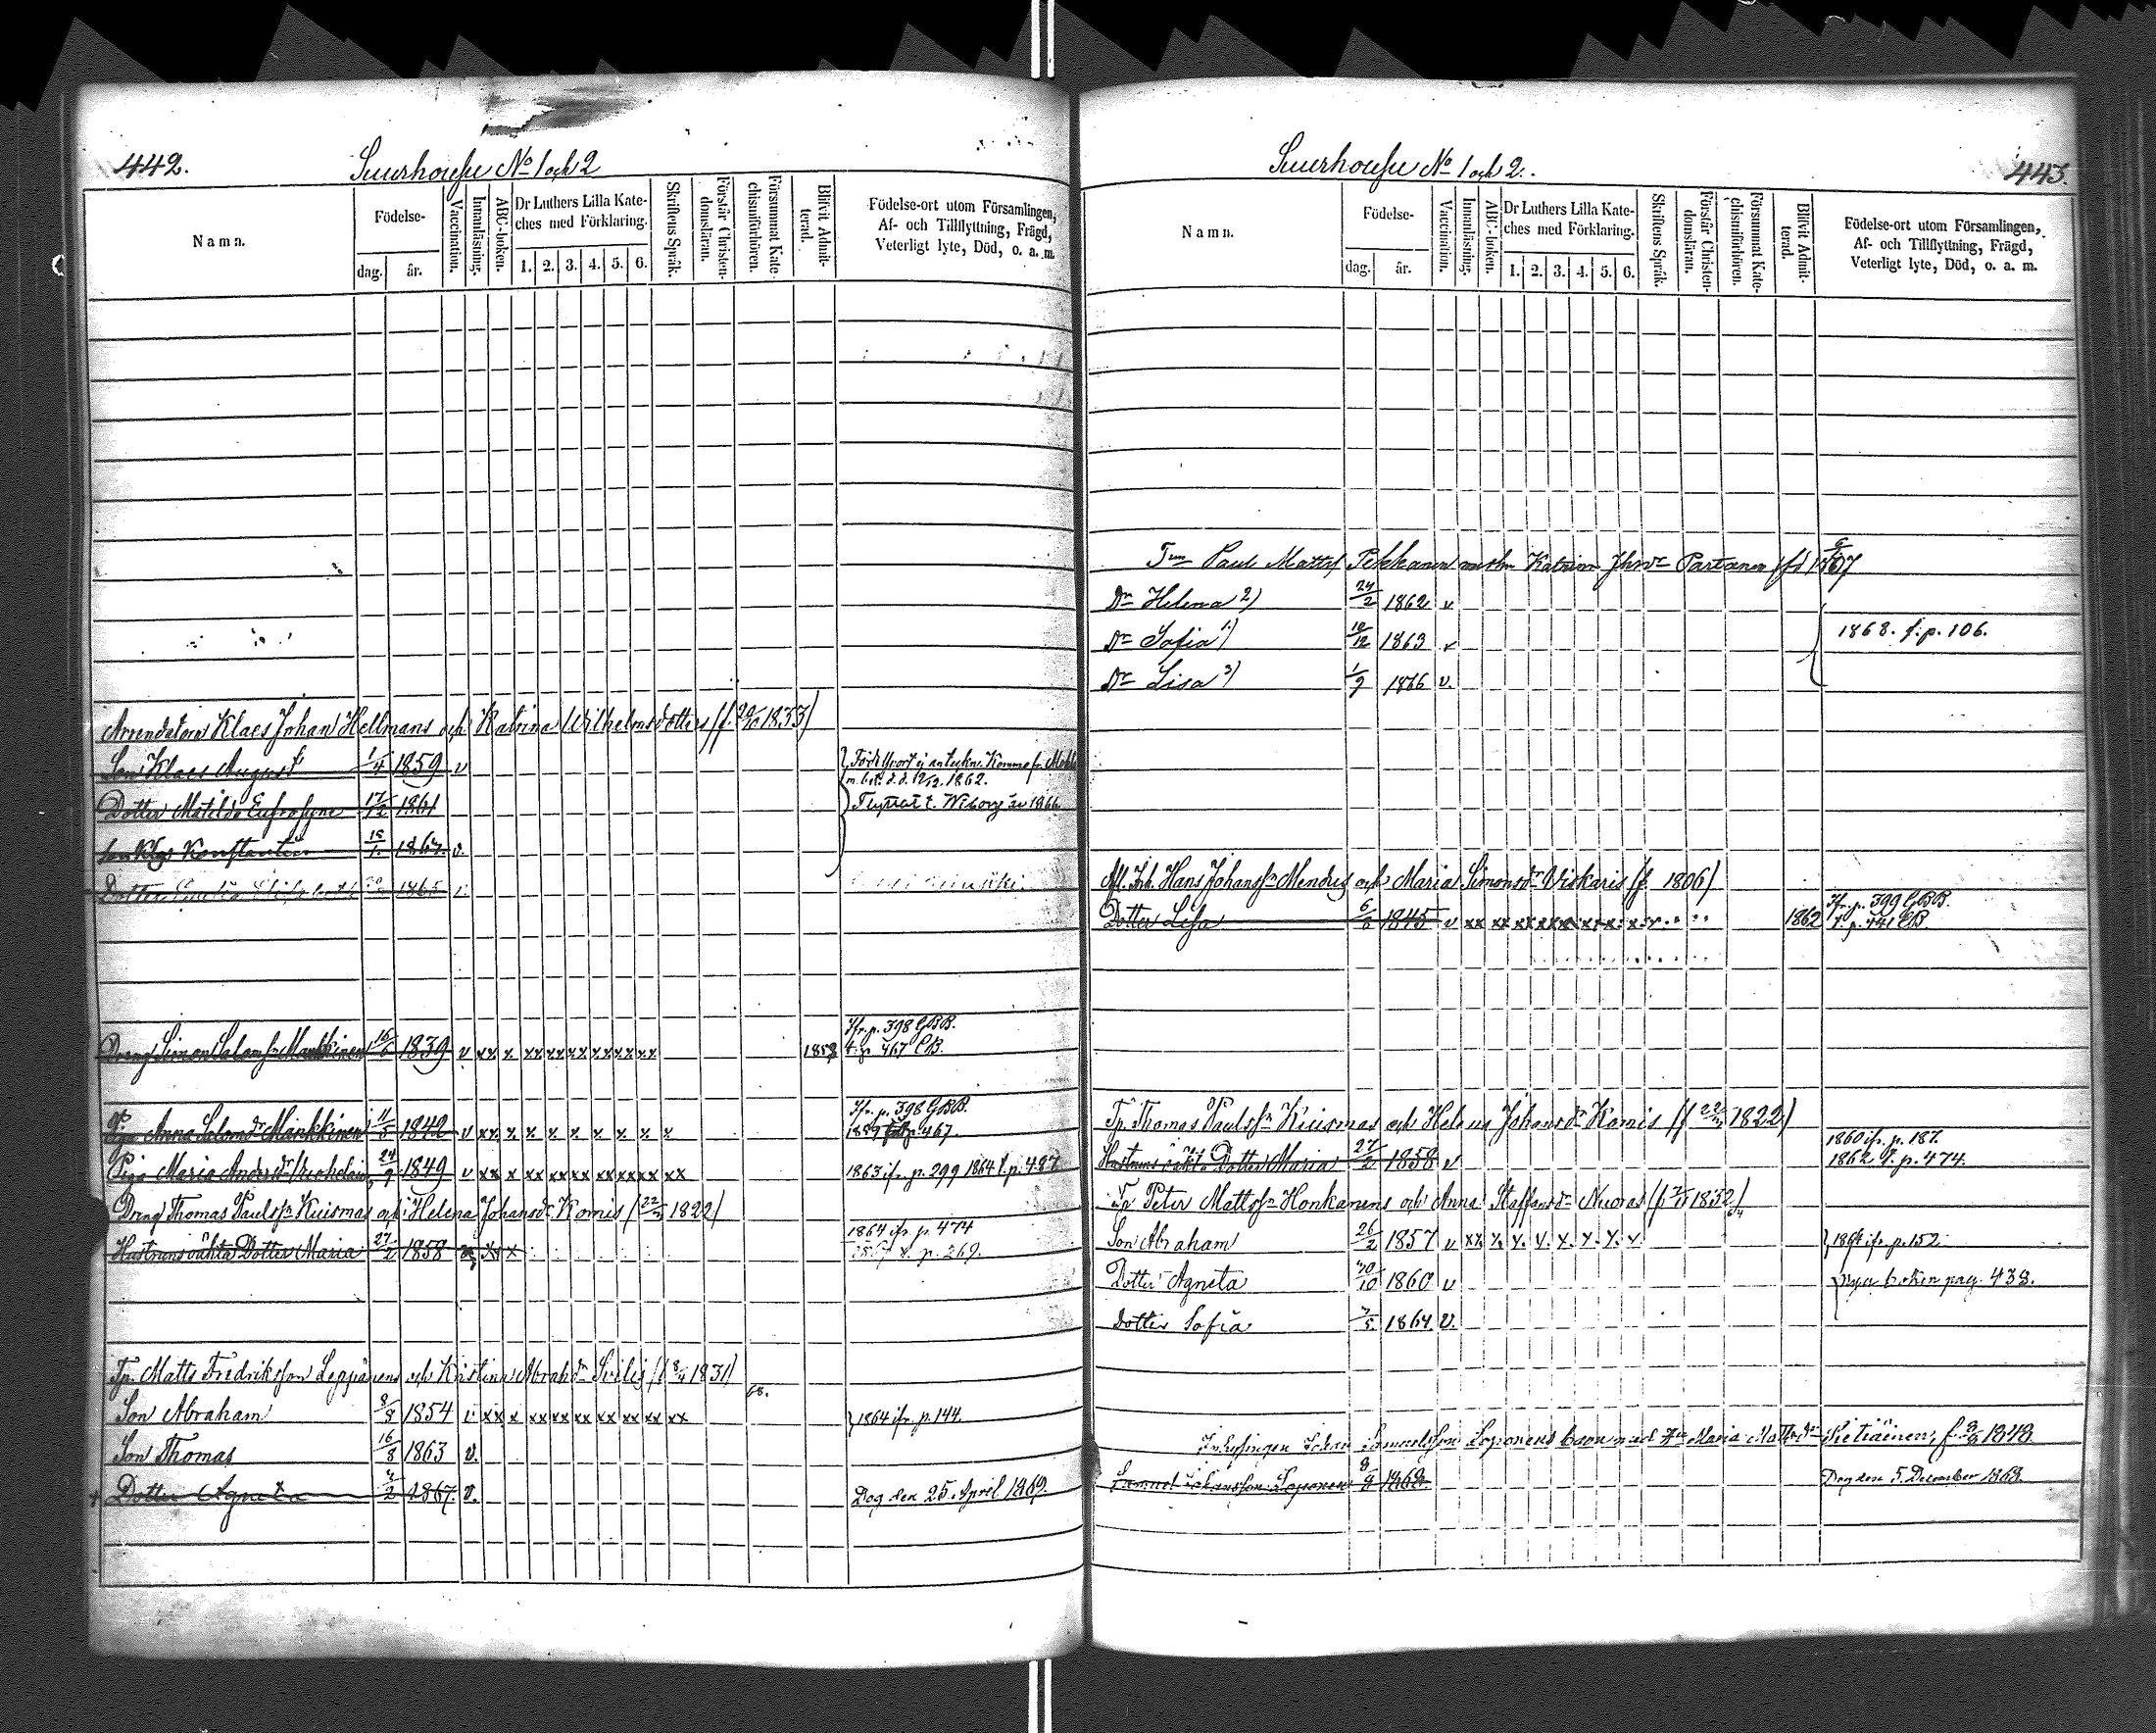 442.
Suurhousu No 1 och 2
Namn.
Födelse-
dag.
år.
Vaccination.
Innanläsning.
ABC-boken.
Dr Luthers Lilla Kate-
ches med Förklaring.
1. 2. 3. 4. 5. 6.
Skriftens Språk.
Förstår Christen-
domsläran.
Försummat Kate-
chismiförhören.
Blifvit Admit-
terad.
Födelse-ort utom Församlingen,
Af- och Tillflyttning, Frägd,
Veterligt lyte, Död, o. a. m.
Arrendatorn Klaes Johan Hellmans och Katrina Wilhelmsdotters (f. 1833)
Son Klaes August 1/4 1859 v
m. bet. d. d. 12/12 1862.
Dotter Matilda Eufrosyne 17/12 1861
Flyttat t. Wiborg år 1866
Son Klas Konstantin 15/1 1864 v.
Dotter 1865
Ifr. p. 398 GBB.
Dreng Simon Salomsn Mankkinen 16/6 1839 v xx x xx xx xx xx xx xx 1858 t. p. 467 CB.
Ifr. p. 398 GBB.
Piga Anna Salomdr Mankkinen 11/5 1842 v xx x x x x x x x x 1859 467.
Piga Maria Andersdr 24/9 1849 v xx x xx xx xx xx xx xx xx 1863 ifr. p. 299 1864 t. p. 487
Dreng Thomas Paulsfn Kuismas och Helena Johansdr Komis (22/3 1822)
1864 ifr. p. 474
Hustruns oäkta Dotter Maria 27/2 1858 v xx x t. p. 269.
Tp. Matts Fredriksson Leppänens och Kristina Abrahdr Seiles (f. 8/4 1831)
68.
Son Abraham 8/8 1854 v xx x xx xx xx xx xx xx xx 1864 ifr. p. 144.
Son Thomas 16/8 1863 v.
Dotter Agneta 4/2 1867. v. Dog den 25. April 1869.
443.
Suurhousu No 1 och 2.
Namn.
Födelse-
dag.
år.
Vaccination.
Innanläsning.
ABC-boken.
Dr Luthers Lilla Kate-
ches med Förklaring.
1. 2. 3. 4. 5. 6.
Skriftens Språk.
Förstår Christen-
domsläran.
Försummat Kate-
chismiförhören.
Blifvit Admit-
terad.
Födelse-ort utom Församlingen,
Af- och Tillflyttning, Frägd,
Veterligt lyte, Död, o. a. m.
Paul Mattsf Pekkanen Katrina Partanen
Dr Helena 2) 24/2 1862 v
Dr Sofia 1) 18/12 1863 v 1868. f. p. 106.
Dr Lisa 3) 1/9 1866 v.
Afl. Inh. Hans Johansfn Mendes och Maria Simonsdr Viskaris (f. 1806)
Ifr. p. 399 GBB.
Dotter Lisa 6/8 1845 v xx xx xx xx xx xx xx xx 1862 t. p. 441 CB.
Tp. Thomas Paulsfn Kuismas och Helenas Johansdr Komis (f 22/3 1822)
1860 ifr. p. 187.
Hustruns oäkta Dotter Maria 27/2 1858 v 1862 t. p. 474.
Tp Peter Mattsfn Honkanens och Anna Staffansdr Nuoras (f. 1832)
Son Abraham 26/2 1857 v xx x. x. x. x. x. x. x 1864 ifr. p. 152.
Dotter Agneta 30/10 1860 v nya boken pag. 438.
Dotter Sofia 7/5 1864. v.
Inhysingen Johan Samuelsson Loponens barn med Hu Maria Mattsdr Pietiäinen, f. 1848.
Samuel Johansson Loponen 8/9 1868. Dog den 5. December 1868.